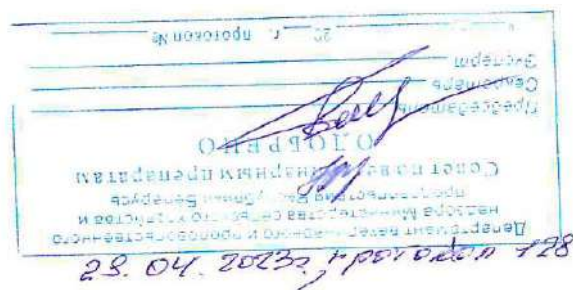 Департамент ветеринарного и продовольственного
надзора Министерства сельского хозяйства и
продовольствия Республики Беларусь
Совет по ветеринарным препаратам
ОДОБРЕНО
Председатель
Секретарь
Эксперт
20 г. протокол №
28. 04. 2023г протокол 128